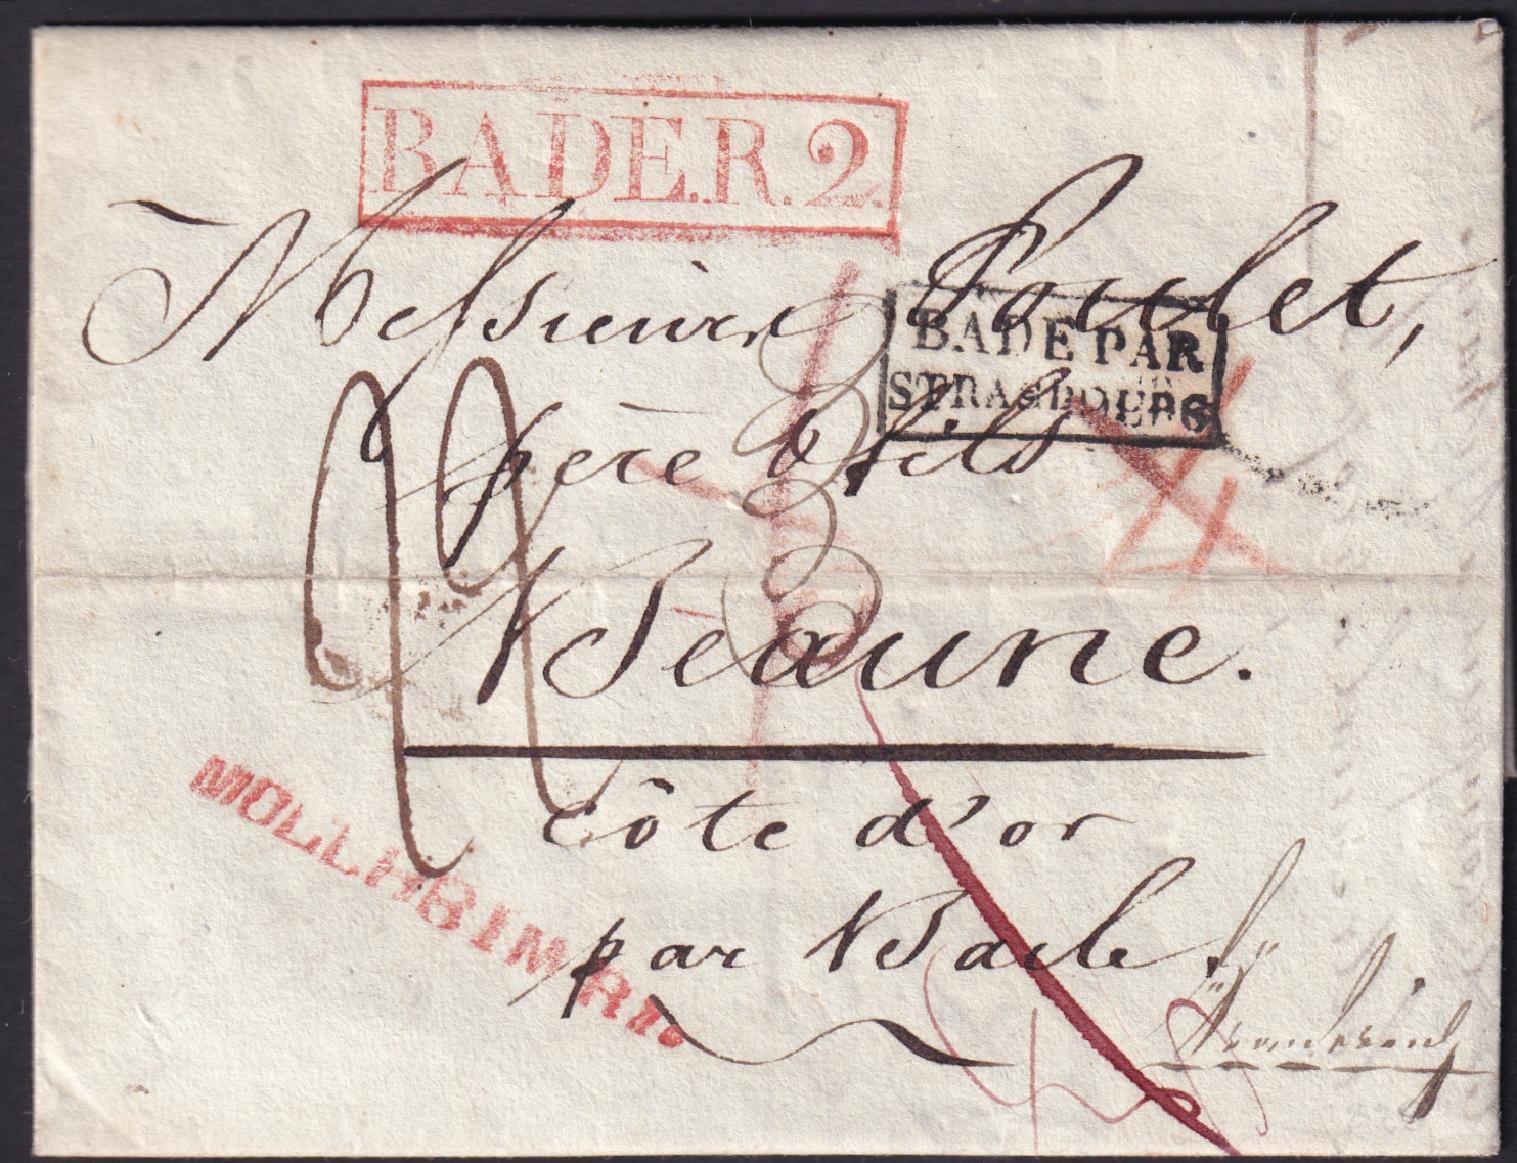 BADE.R.2.
Messieurs Poulet,
BADE PAR
STRASBOURG
père & fils
Beaune.
côte d'or
MÜLLHEIM
par Basle.